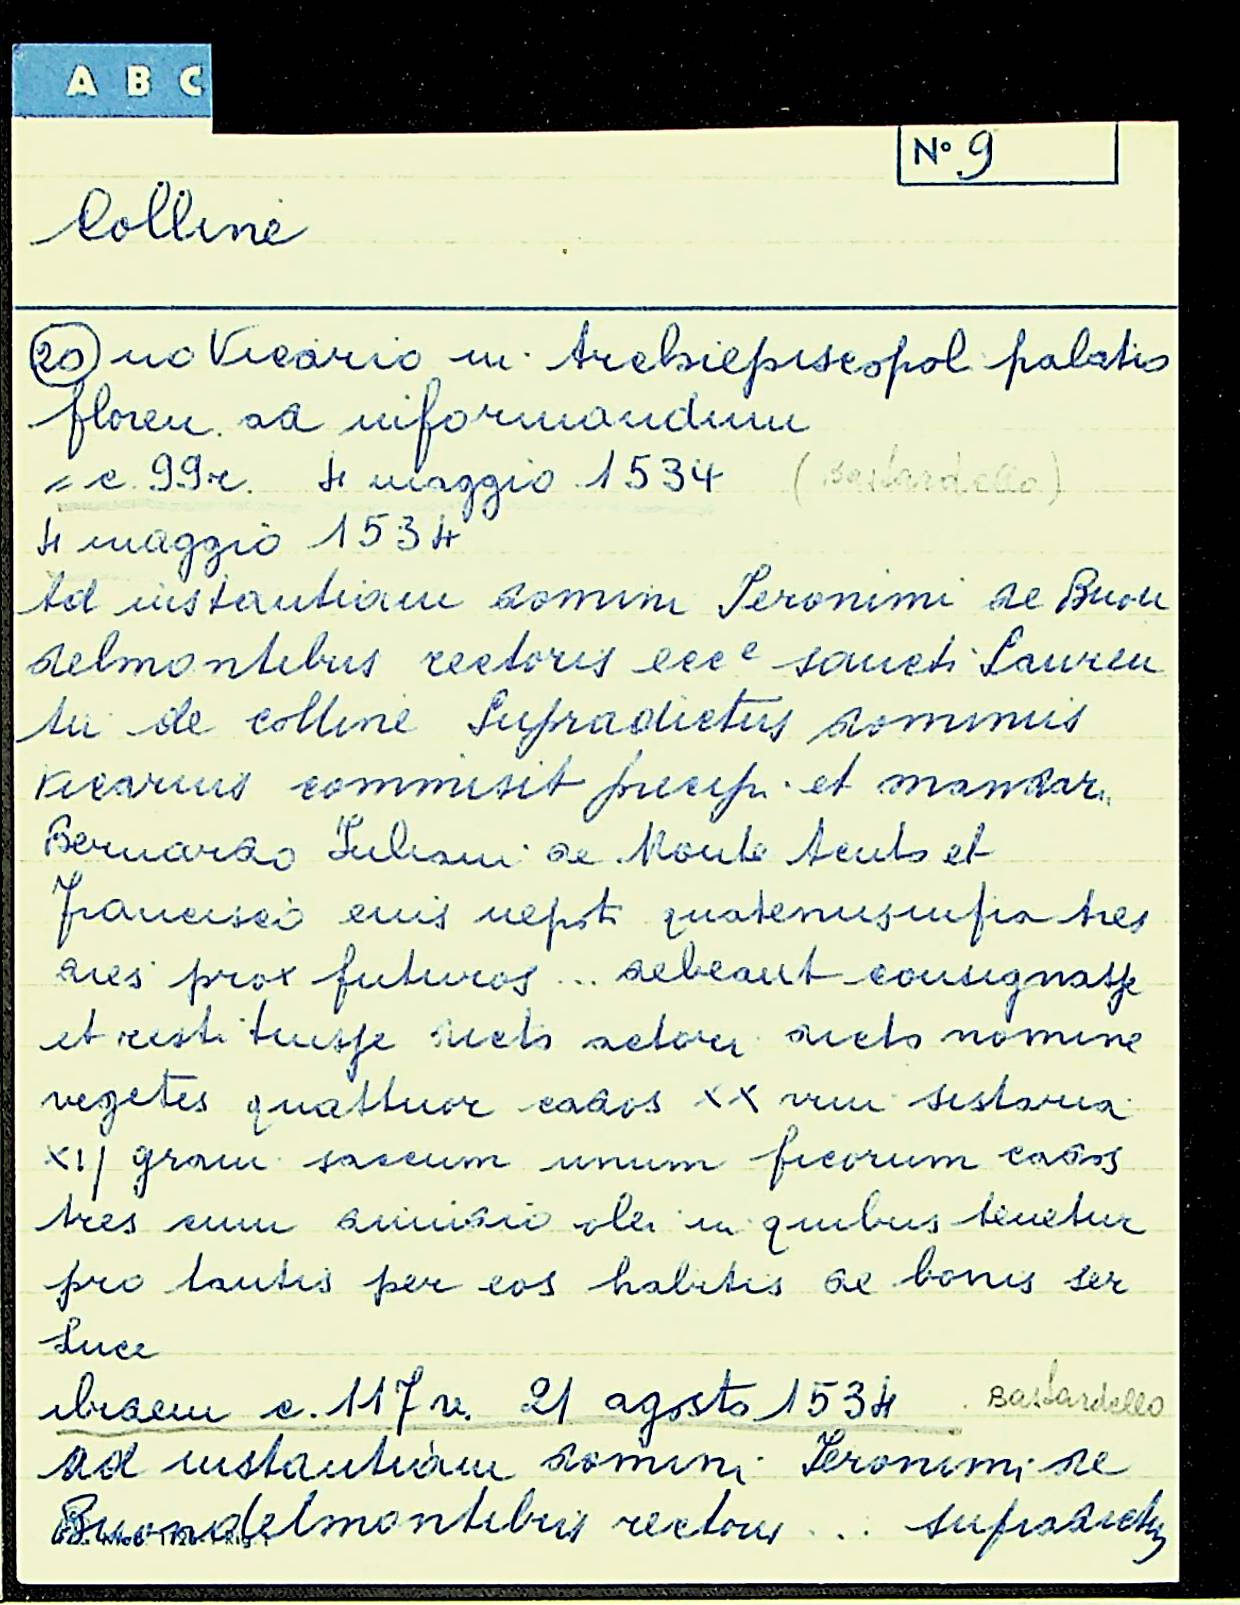 A B C
N° 9
Colline
20 no Vicario in Archiepiscopol palatio
floren. ad informandum
= c. 99r. 4 maggio 1534 (Bastardello)
4 maggio 1534
Ad instantiam domini Ieronimi de Buon
delmontibus rectoris ecce sancti Lauren
tii de colline Supradictus dominus
vicarius commisit precip. et mandar.
Bernardo Iuliani de Monte Acuto et
Francisco eius nepoti quatenus infra tres
dies prox futuros ... debeant consignasse
et restituisse dicto actori dicto nomine
vegetes quattuor cados XX vini sistaria
XIJ grani saccum unum ficorum cados
tres cum dimidio olei in quibus tenetur
pro tantis per eos habitis de bonis ser
Luce
ibidem c. 117 r. 21 agosto 1534 Bastardello
ad instantiam domini Ieronimi de
Buondelmontibus rectoris ... supradictus